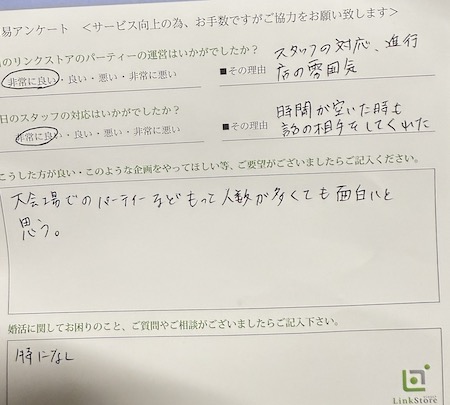 易アンケート ＜サービス向上の為、お手数ですがご協力をお願い致します＞
のリンクストアのパーティーの運営はいかがでしたか？
非常に良い・良い・悪い・非常に悪い
■その理由
スタッフの対応、進行
店の雰囲気
日のスタッフの対応はいかがでしたか？
非常に良い・良い・悪い・非常に悪い
■その理由
時間が空いた時も
話の相手をしてくれた
こうした方が良い・このような企画をやってほしい等、ご要望がございましたらご記入ください。
大会場でのパーティーなどもって人数が多くても面白いと
思う。
婚活に関してお困りのこと、ご質問やご相談がございましたらご記入下さい。
特になし
LinkStore